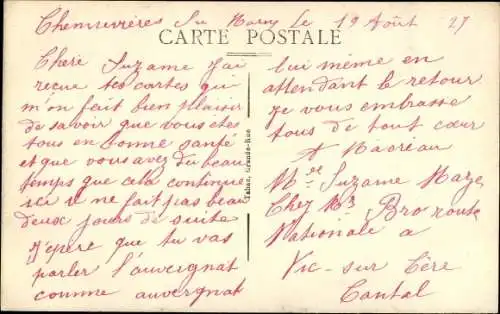 Chennevières Su Marne Le 19 Août 27
CARTE POSTALE
Chère Suzame j'ai
reçue tes cartes qui
m'on fait bien plaisir
de savoir que vous ètes
tous en bonne santé
et que vous avez du beau
temps que cela continue
ici il ne fait pas beau
deux jours de suite
j'epère que tu vas
parler l'auvergnat
comme auvergnat
Tabac, Grande-Rue
lui même en
attendant le retour
je vous embrasse
tous de tout cœur
A Macreau
Mlle Suzame Maze
Chez Mr Bro route
Nationale a
Vic-sur Cère
Cantal